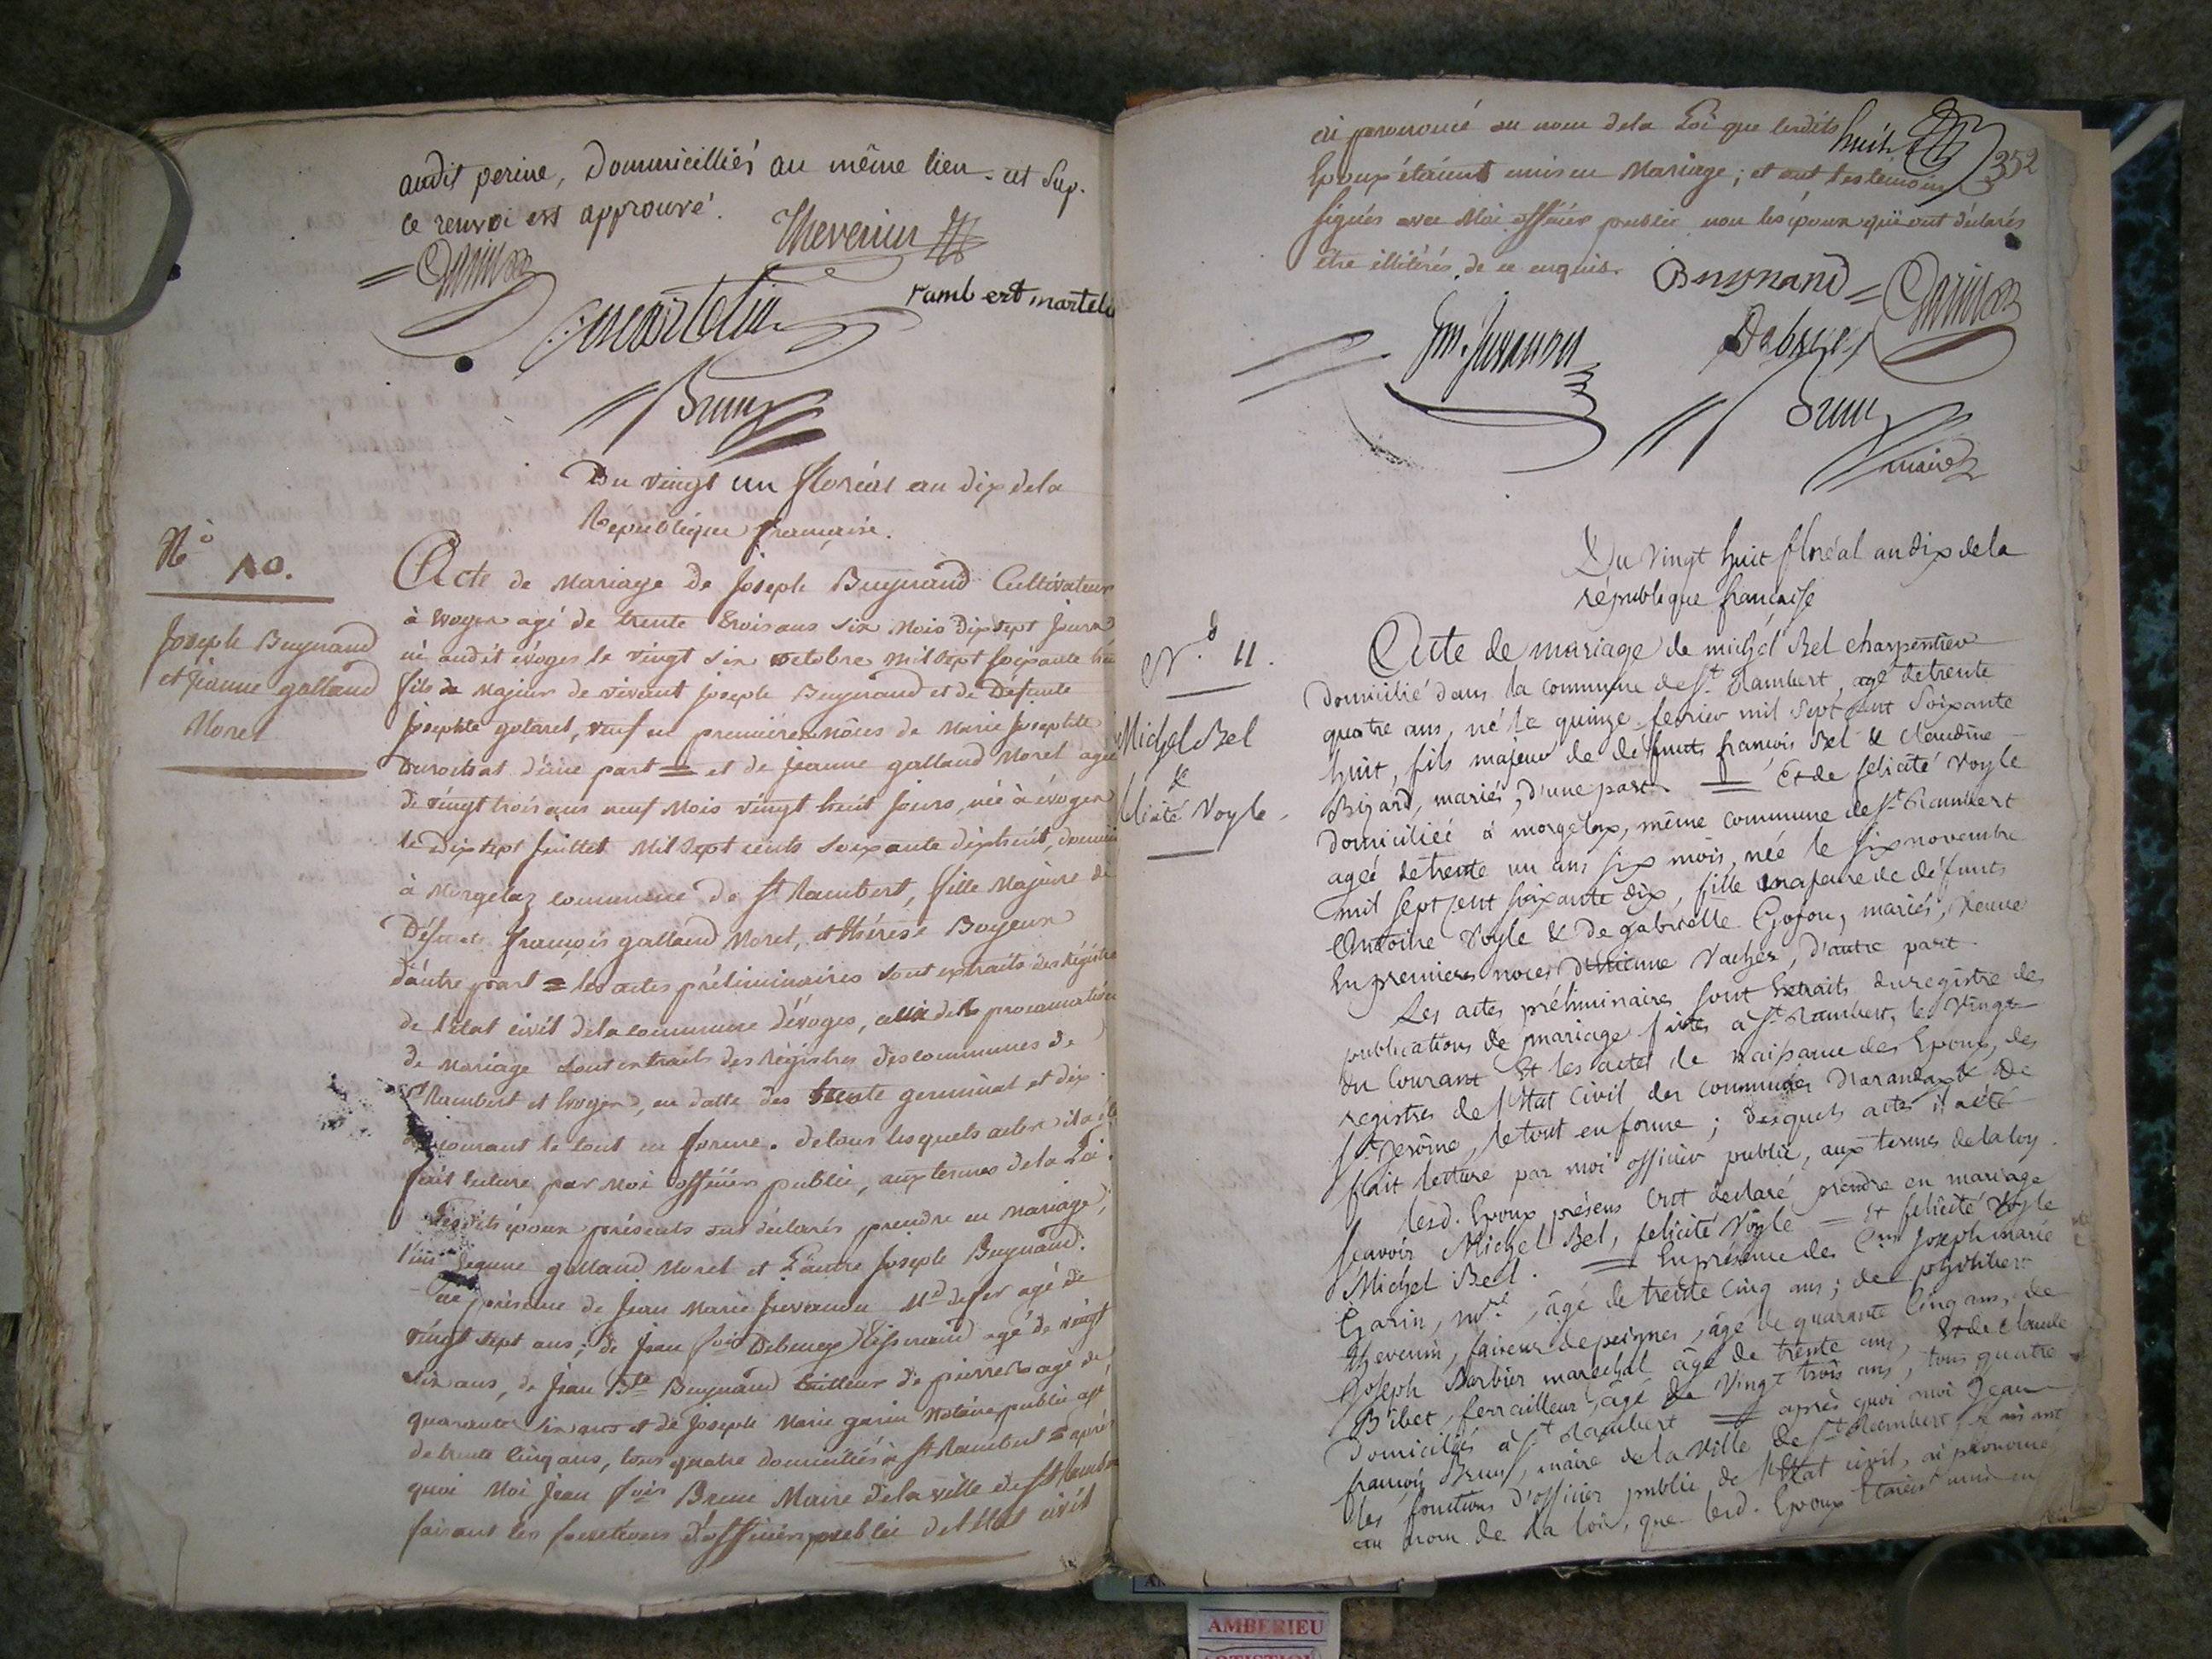 audit perine, Dommicilliés au même lien. et sup.
ce renvoi est approuvé.
Thevenin
Garin
rambert martel
Brun
Du vingt un floréal an dix de la
Republique française.
N.o 10.
Joseph Buynand
et jeanne galland
Morel
Acte de Mariage de Joseph Buynand Cultivateur
à Evoges agé de trente trois ans six Mois dix sept jours
né audit évoges le vingt six octobre Mil sept soixante huit
fils Majeur de vivant Joseph Buynand et de Défunte
Josephte golaret, veuf en premières nôces de Marie Josephte
d'une part = et de jeanne galland Morel agée
de vingt trois ans neuf Mois vingt huit jours, née à évoges
le dix sept juillet Mil sept cents soixante dix huit,
à Morgelaz commune de St Rambert, fille Majeure de
Défunts françois galland Morel, et thérese Boyeux
d'autre part = les actes préliminaires sont extraits des Régistres
de l'état civil de la commune d'évoges, celui de la proclamation
de Mariage sont extraits des Régistres des communes de
St Rambert et Evoges, en datte des trente germinal et dix
courant le tout en forme. de tous lesquels actes il a été
fait lecture par Moi officier public, aux termes de la Loi.
Lesdits époux présents ont déclarés prendre en Mariage,
l'un Jeanne galland Morel et L'autre Joseph Buynand.
En présence de Jean Marie Juvanon Md de fer agé de
vingt sept ans; de Jean fois Debeney Tisserand agé de vingt
six ans, de Jean Bte Buynand tailleur de pierres agé de
quarante six ans et de Joseph Marie garin Notaire public agé
de trente cinq ans, tous quatre domiciliés à St Rambert = après
quoi Moi Jean fois Brun Maire de la ville de St Rambert
faisant les fonctions d'officier public de l'état civil
huit
352
ai prononcé au nom de la Loi que lesdits
Epoux étaient unis en Mariage; et ont les temoins
signés avec Moi officier public non les époux qui ont déclarés
être illitérés de ce enquis.
Buynand
Garin
jm. Juvanon
Debeney
Brun
maire
Du vingt huit floréal an dix de la
république française
N.o 11.
Michel Bel
&
félicité Voyle
Acte de mariage de michel Bel charpentier
domicilié dans la commune de St Rambert, agé de trente
quatre ans, né le quinze fevrier mil sept cent soixante
huit, fils majeur de défunts françois Bel & claudine
Bizard, mariés, d'une part. = Et de félicité Voyle
domiciliée à morgelax, même commune de St Rambert
agée de trente un ans six mois, née le six novembre
mil sept cent soixante dix, fille majeure de défunts
Antoine Voyle & de gabrielle Gojon, mariés, veuve
en premieres noces d'étienne Vacher, d'autre part.
Les actes préliminaires sont Extraits du registre des
publications de mariage faites à St Rambert, le vingt
du courant Et les actes de naissance des Epoux, des
registres de l'Etat Civil des communes d'arandax & de
St jerôme, le tout en forme; desquels actes il a été
fait lecture par moi officier public, aux termes de la loy.
lesd. Epoux présens ont declaré prendre en mariage
sçavoir Michel Bel, felicité Voyle = Et felicité Voyle
Michel Bel. = En présence des Cens Joseph marie
Garin, nore, âgé de trente cinq ans; de philibert
thevenin, faiseur de peignes, âgé de quarante cinq ans, de
Joseph Barbier marechal âgé de trente ans, & de claude
Bibet, ferrailleur, âgé de vingt trois ans, tous quatre
domiciliés à St Rambert = après quoi moi jean
françois Brun, maire de la ville de St Rambert, faisant
les fonctions d'officier public de l'Etat civil, ai prononcé
au nom de la loi, que lesd. Epoux Etaient unis en
AMBERIEU